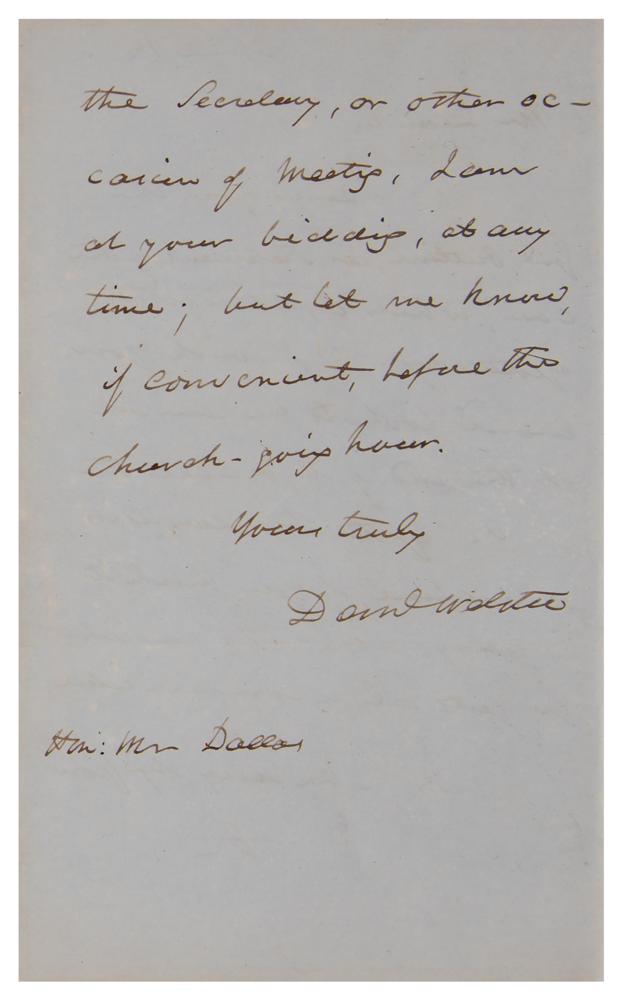 the Secretary, or other oc-
casion of meeting, I am
at your bidding, at any
time; but let me know,
if convenient, before the
church-going hour.
Yours truly
Danl Webster
Hon: Mr Dallas